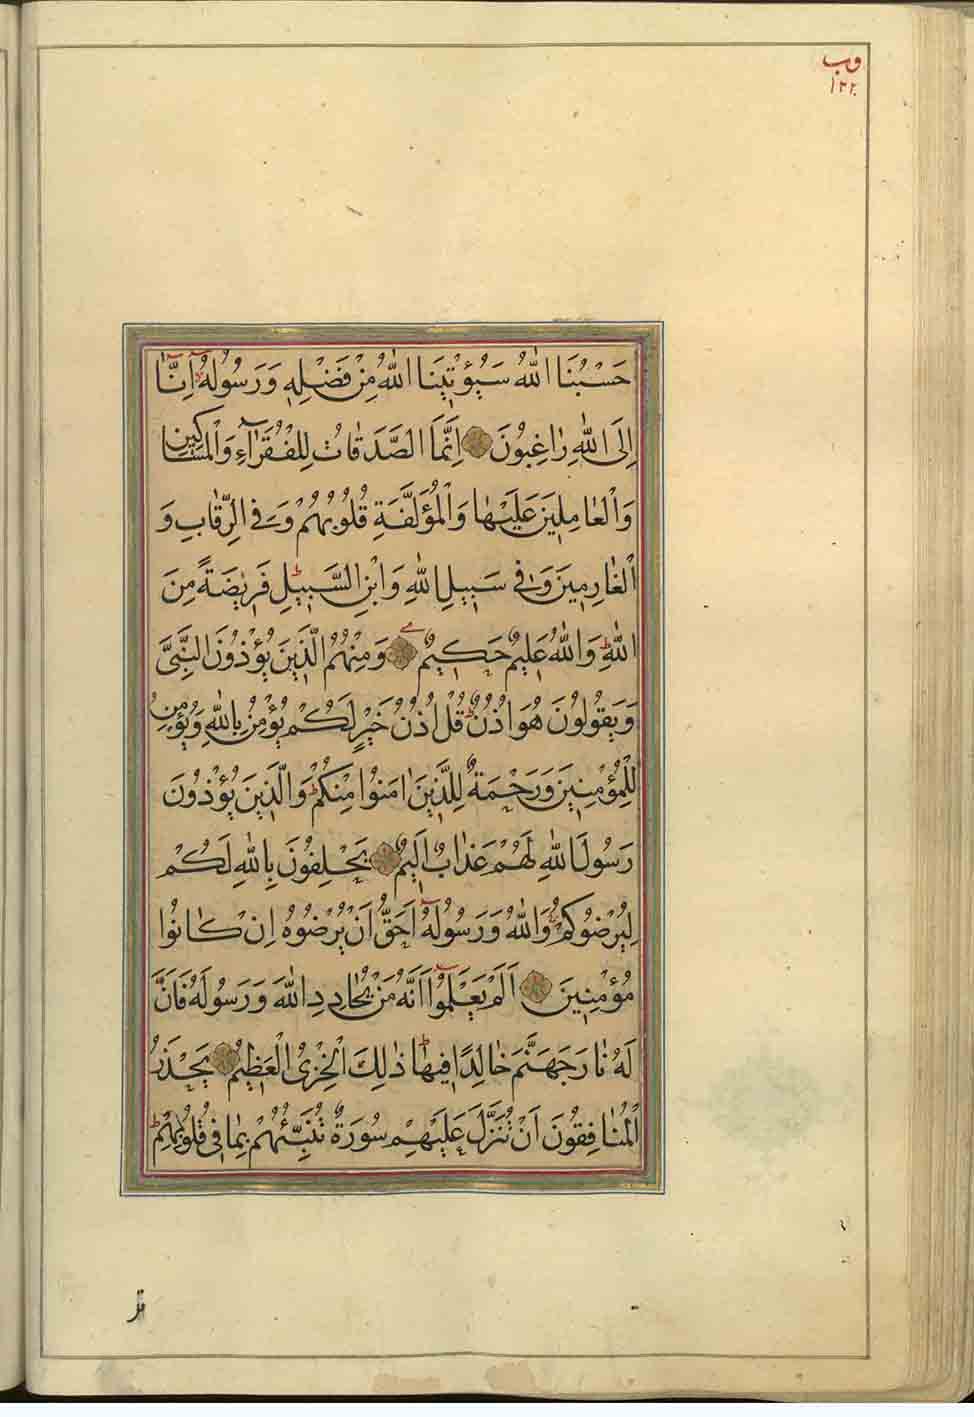 ١٢٢
حَسْبُنَا اللّٰهُ سَيُؤْتِينَا اللّٰهُ مِنْ فَضْلِهِ وَرَسُولُهُ اِنَّا
اِلَى اللّٰهِ رَاغِبُونَ اِنَّمَا الصَّدَقَاتُ لِلْفُقَرَآءِ وَالْمَسَاكِينِ
وَالْعَامِلِينَ عَلَيْهَا وَالْمُؤَلَّفَةِ قُلُوبُهُمْ وَفِي الرِّقَابِ وَ
الْغَارِمِينَ وَفِي سَبِيلِ اللّٰهِ وَابْنِ السَّبِيلِ فَرِيضَةً مِنَ
اللّٰهِ وَاللّٰهُ عَلِيمٌ حَكِيمٌ وَمِنْهُمُ الَّذِينَ يُؤْذُونَ النَّبِيَّ
وَيَقُولُونَ هُوَ اُذُنٌ قُلْ اُذُنُ خَيْرٍ لَكُمْ يُؤْمِنُ بِاللّٰهِ وَيُؤْمِنُ
لِلْمُؤْمِنِينَ وَرَحْمَةٌ لِلَّذِينَ اٰمَنُوا مِنْكُمْ وَالَّذِينَ يُؤْذُونَ
رَسُولَ اللّٰهِ لَهُمْ عَذَابٌ اَلِيمٌ يَحْلِفُونَ بِاللّٰهِ لَكُمْ
لِيُرْضُوكُمْ وَاللّٰهُ وَرَسُولُهُ اَحَقُّ اَنْ يُرْضُوهُ اِنْ كَانُوا
مُؤْمِنِينَ اَلَمْ يَعْلَمُوا اَنَّهُ مَنْ يُحَادِدِ اللّٰهَ وَرَسُولَهُ فَاَنَّ
لَهُ نَارَ جَهَنَّمَ خَالِدًا فِيهَا ذٰلِكَ الْخِزْيُ الْعَظِيمُ يَحْذَرُ
الْمُنَافِقُونَ اَنْ تُنَزَّلَ عَلَيْهِمْ سُورَةٌ تُنَبِّئُهُمْ بِمَا فِي قُلُوبِهِمْ